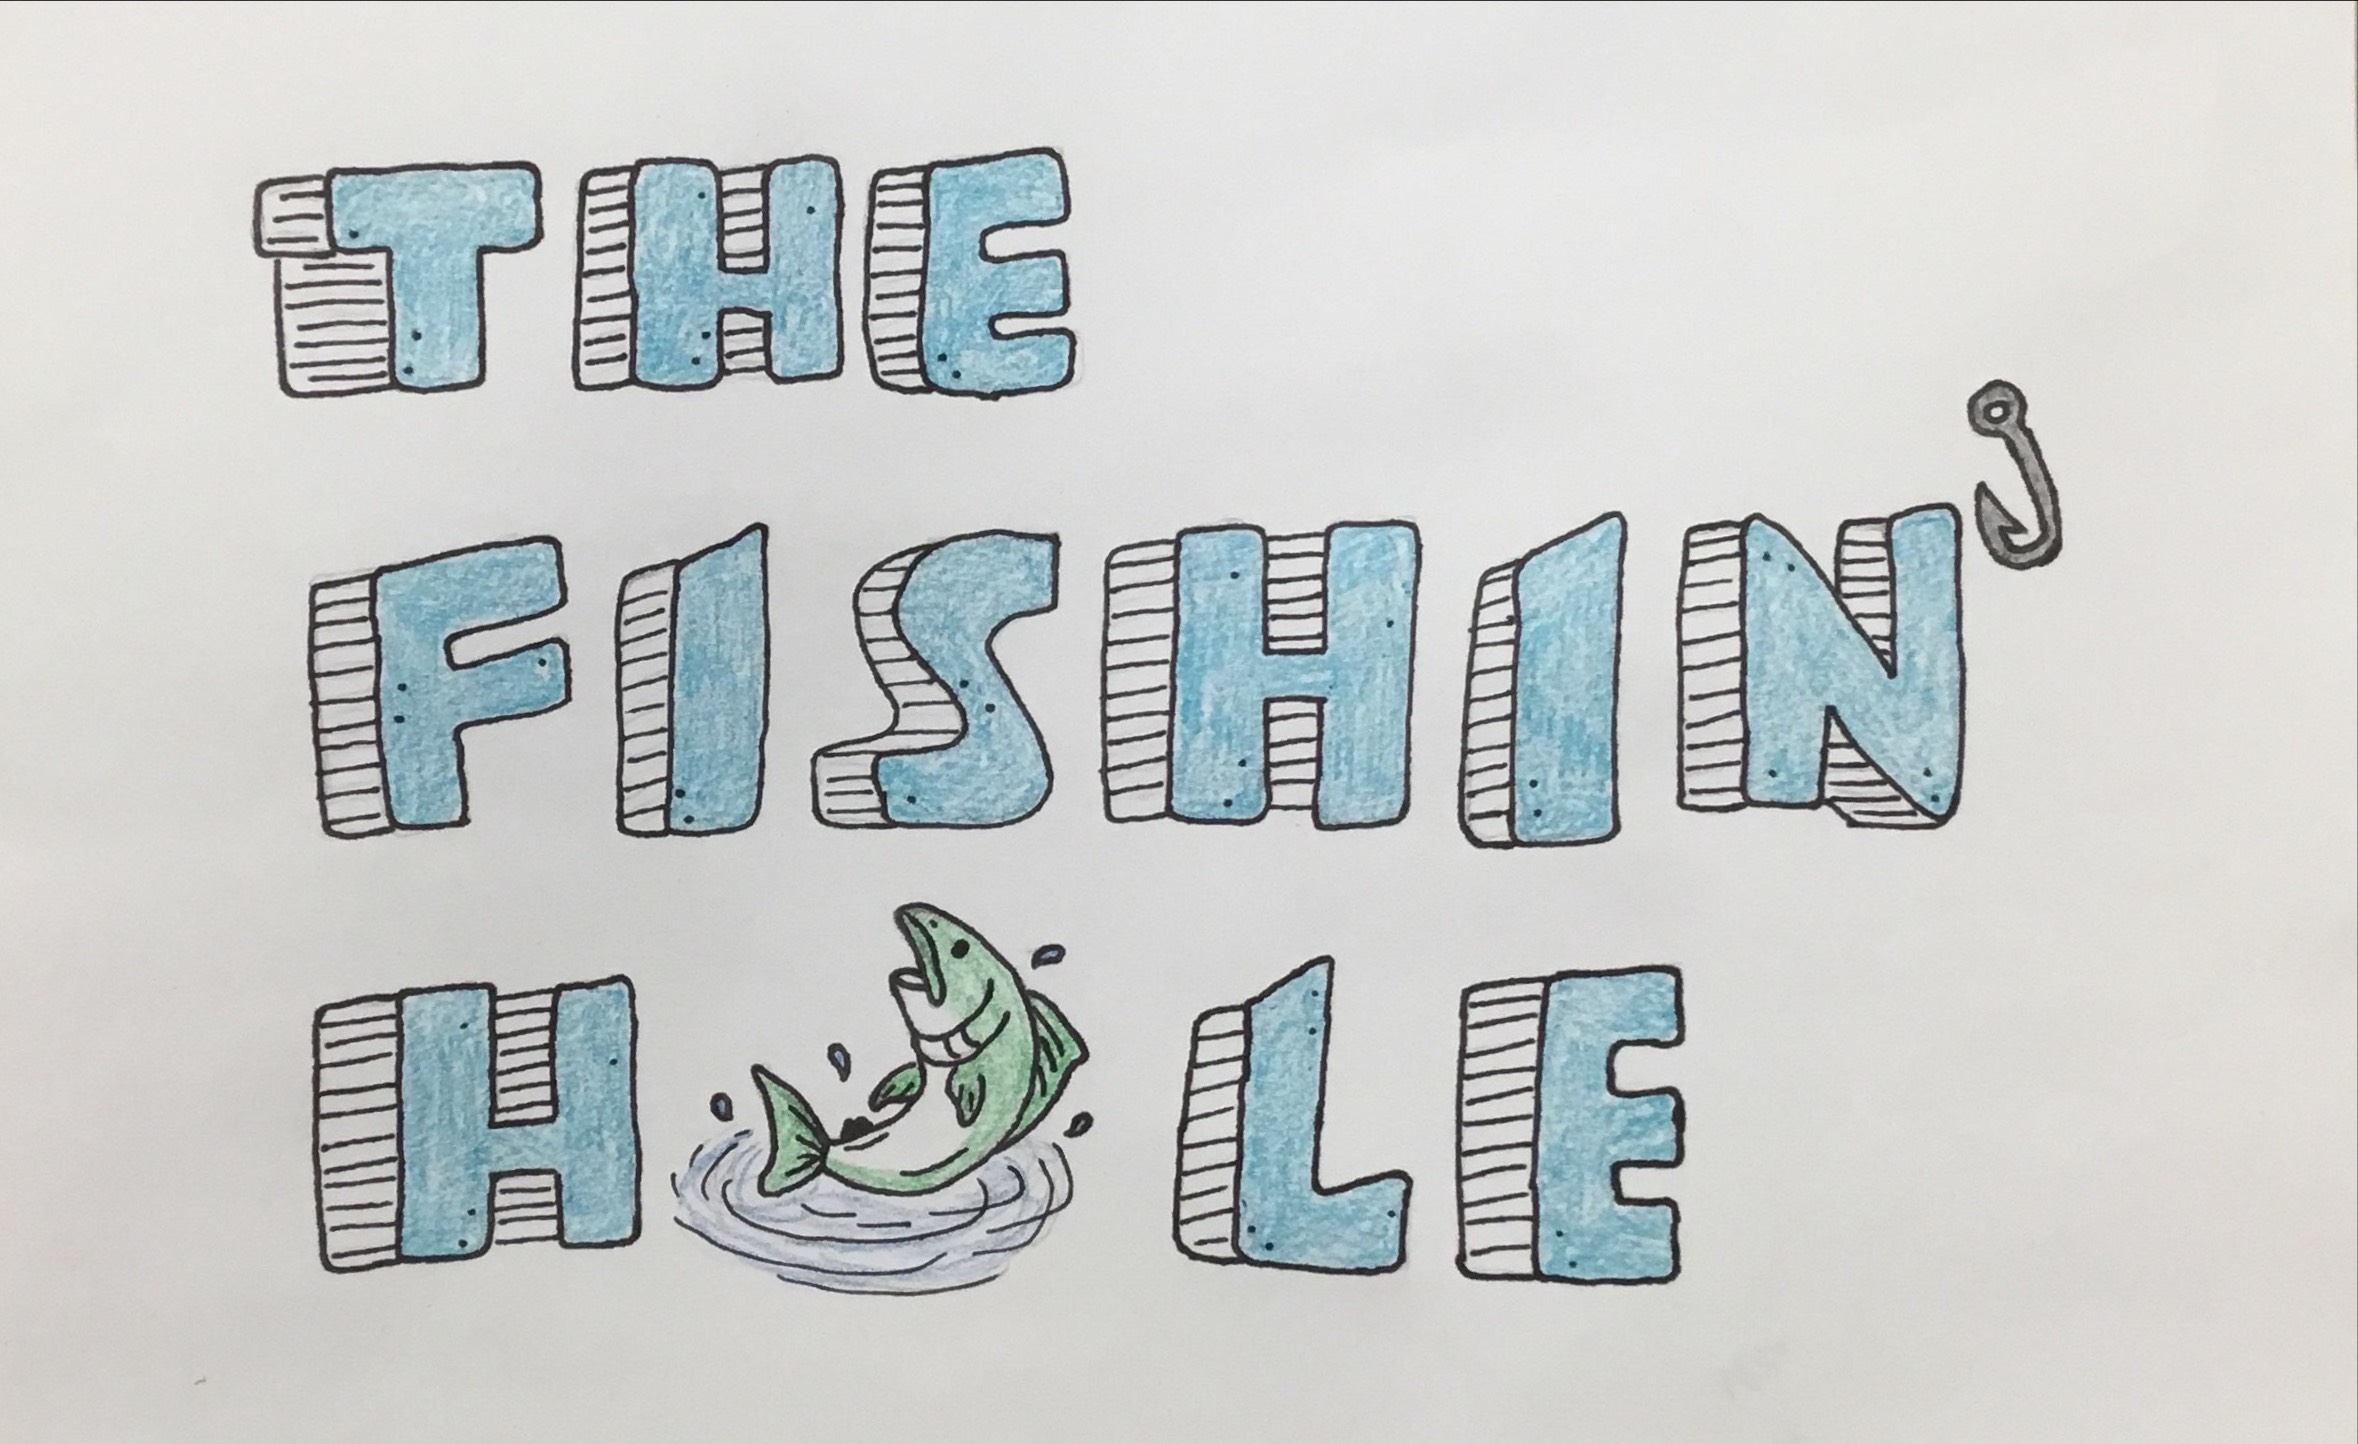 THE
FISHIN'
HOLE